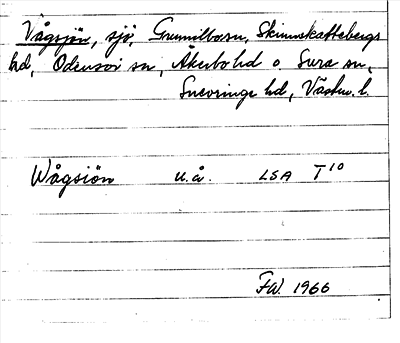 Vågsjön, sjö, Gunnilbosn, Skinnskattebergs
hd, Odensvi sn, Åkerbo hd o. Sura sn,
Snevringe hd, Västm. l.
Wågsiön u.å. LSA T10
F.W. 1966